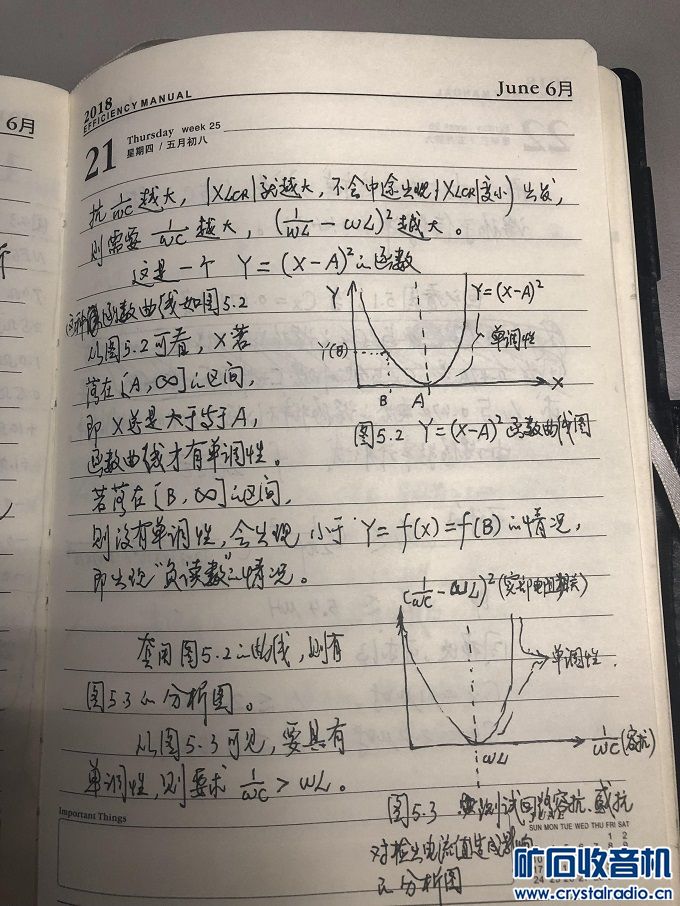 6月
2018
EFFICIENCY MANUAL
June 6月
21
Thursday week 25
星期四 / 五月初八
抗 1/ωC 越大，|XLCR| 就越大，不会中途出现 |XLCR| 变小) 出发，
则需要 1/ωC 越大，(1/ωL - ωL)² 越大。
这是一个 Y = (X-A)² 的函数
函数曲线如图5.2
从图5.2可看，X若
落在[A,∞]的区间，
即X总是大于等于A，
函数曲线才有单调性。
若落在[B,∞]的区间，
则没有单调性，会出现小于 Y = f(X) = f(B) 的情况，
即出现"负读数"的情况。
Y
Y=(X-A)²
单调性
Y(B)
B
A
X
图5.2 Y=(X-A)² 函数曲线图
套用图5.2的曲线，则有
图5.3的分析图。
从图5.3可见，要具有
单调性，则要求 1/ωC > ωL。
(1/ωC - ωL)²
单调性
ωL
1/ωC (容抗)
图5.3 测试回路容抗、感抗
对检出电流值造成影响
的分析图
Important Things
SUN MON TUE WED THU FRI SAT
矿石收音机
www.crystalradio.cn